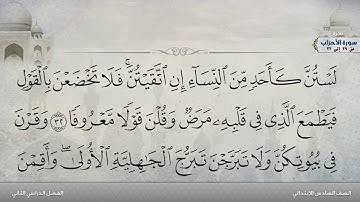 تلاوة
سورة الأحزاب
من ٢٩ إلى ٣٣
لَسْتُنَّ كَأَحَدٍ مِّنَ ٱلنِّسَآءِ إِنِ ٱتَّقَيْتُنَّۚ فَلَا تَخْضَعْنَ بِٱلْقَوْلِ
فَيَطْمَعَ ٱلَّذِى فِى قَلْبِهِۦ مَرَضٌ وَقُلْنَ قَوْلًا مَّعْرُوفًا ٣٢ وَقَرْنَ
فِى بُيُوتِكُنَّ وَلَا تَبَرَّجْنَ تَبَرُّجَ ٱلْجَٰهِلِيَّةِ ٱلْأُولَىٰۖ وَأَقِمْنَ
الصف السادس الابتدائي
الفصل الدراسي الثاني